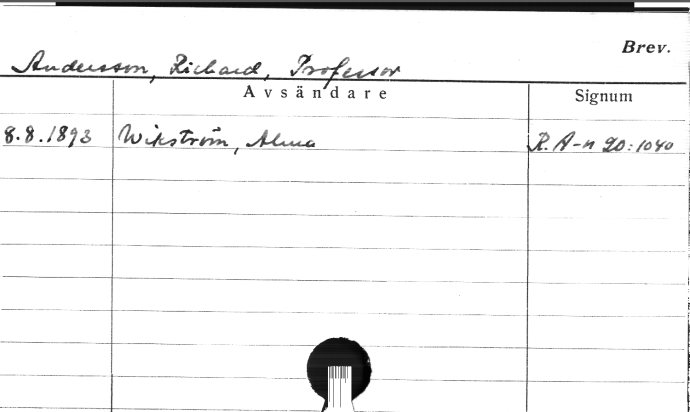 Brev.
Andersson, Richard, Professor
Avsändare Signum
8.8.1893 Wikström, Alma R. A-n 20:1040